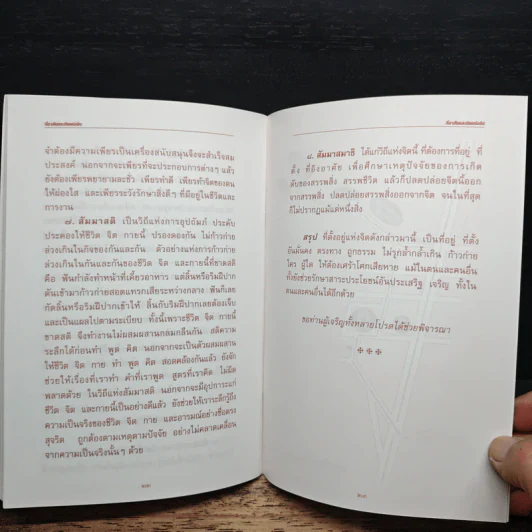 จำต้องมีความเพียรเป็นเครื่องสนับสนุนจึงจะสำเร็จสม
ประสงค์ นอกจากจะเพียรที่จะประกอบการต่างๆ แล้ว
ยังต้องเพียรพยายามละชั่ว เพียรทำดี เพียรทำจิตของตน
ให้ผ่องใส และเพียรระวังรักษาสิ่งดีๆ ที่มีอยู่ในชีวิตและ
การงาน
๗. สัมมาสติ เป็นวิถีแห่งการอุปถัมภ์ ประคับ
ประคองให้ชีวิต จิต กายนี้ ปรองดองกัน ไม่ก้าวก่าย
ล่วงเกินในกิจของกันและกัน ตัวอย่างแห่งการก้าวก่าย
ล่วงเกินในกันและกันของชีวิต จิต และกายนี้ที่ขาดสติ
คือ ฟันกำลังทำหน้าที่เคี้ยวอาหาร แต่ลิ้นหรือริมฝีปาก
ดันเข้ามาก้าวก่ายสอดแทรกเสียระหว่างกลาง ฟันก็เลย
กัดลิ้นหรือริมฝีปากเข้าให้ ลิ้นกับริมฝีปากเลยต้องเจ็บ
และเป็นแผลไปตามระเบียบ ทั้งนี้เพราะชีวิต จิต กายนี้
ขาดสติ จึงทำงานไม่ผสมผสานกลมกลืนกัน สติความ
ระลึกได้ก่อนทำ พูด คิด นอกจากจะเป็นตัวผสมผสาน
ให้ชีวิต จิต กาย ทำ พูด คิด สอดคล้องกันแล้ว ยังจัก
ช่วยให้เรื่องที่เราทำ คำที่เราพูด สูตรที่เราคิด ไม่ผิด
พลาดด้วย ในวิถีแห่งสัมมาสติ นอกจากจะมีอุปการะแก่
ชีวิต จิต และกายนี้เป็นอย่างดีแล้ว ยังช่วยให้เราระลึกรู้ถึง
ความเป็นจริงของชีวิต จิต กาย และอารมณ์อย่างซื่อตรง
สุจริต ถูกต้องตามเหตุตามปัจจัย อย่างไม่คลาดเคลื่อน
จากความเป็นจริงนั้นๆ ด้วย
๘. สัมมาสมาธิ ได้แก่วิถีแห่งจิตนี้ ที่ต้องการที่อยู่ ที่
ตั้ง ที่อิงอาศัย เพื่อศึกษาเหตุปัจจัยของการเกิด
ดับของสรรพสิ่ง สรรพชีวิต แล้วก็ปลดปล่อยจิตนี้ออก
จากสรรพสิ่ง ปลดปล่อยสรรพสิ่งออกจากจิต จนในที่สุด
ก็ไม่ปรากฏแม้แต่หนึ่งสิ่ง
สรุป ที่ตั้งอยู่แห่งจิตดังกล่าวมานี้ เป็นที่อยู่ ที่ตั้ง
อันมั่นคง ตรงทาง ถูกธรรม ไม่รุกล้ำกล้ำเกิน ก้าวก่าย
ใคร ผู้ใด ให้ต้องเศร้าโศกเสียหาย แม้ในตนและคนอื่น
ทั้งยังช่วยรักษาสาระประโยชน์อันประเสริฐ เจริญ ทั้งใน
ตนและคนอื่นได้อีกด้วย
ขอท่านผู้เจริญทั้งหลายโปรดได้ช่วยพิจารณา